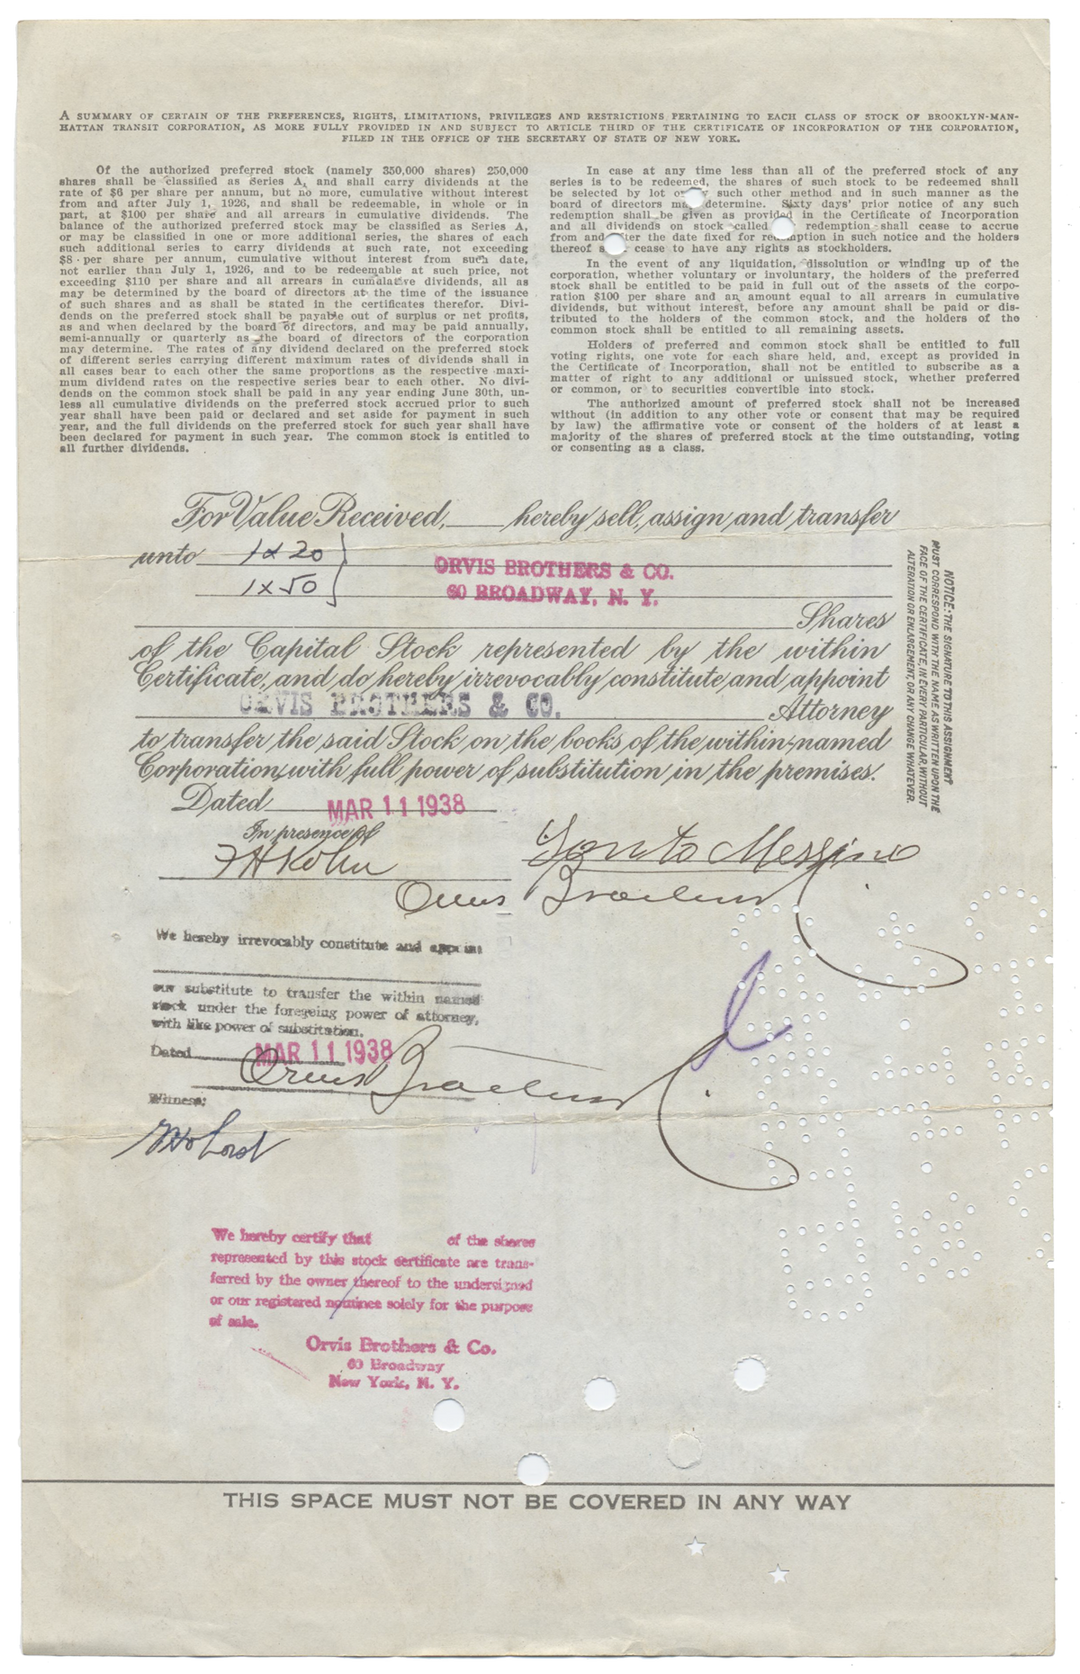 A SUMMARY OF CERTAIN OF THE PREFERENCES, RIGHTS, LIMITATIONS, PRIVILEGES AND RESTRICTIONS PERTAINING TO EACH CLASS OF STOCK OF BROOKLYN-MAN-
HATTAN TRANSIT CORPORATION, AS MORE FULLY PROVIDED IN AND SUBJECT TO ARTICLE THIRD OF THE CERTIFICATE OF INCORPORATION OF THE CORPORATION,
FILED IN THE OFFICE OF THE SECRETARY OF STATE OF NEW YORK.
Of the authorized preferred stock (namely 350,000 shares) 250,000
shares shall be classified as Series A, and shall carry dividends at the
rate of $6 per share per annum, but no more, cumulative without interest
from and after July 1, 1926, and shall be redeemable, in whole or in
part, at $100 per share and all arrears in cumulative dividends. The
balance of the authorized preferred stock may be classified as Series A,
or may be classified in one or more additional series, the shares of each
such additional series to carry dividends at such rate, not exceeding
$8 per share per annum, cumulative without interest from such date,
not earlier than July 1, 1926, and to be redeemable at such price, not
exceeding $110 per share and all arrears in cumulative dividends, all as
may be determined by the board of directors at the time of the issuance
of such shares and as shall be stated in the certificates therefor. Divi-
dends on the preferred stock shall be payable out of surplus or net profits,
as and when declared by the board of directors, and may be paid annually,
semi-annually or quarterly as the board of directors of the corporation
may determine. The rates of any dividend declared on the preferred stock
of different series carrying different maximum rates of dividends shall in
all cases bear to each other the same proportions as the respective maxi-
mum dividend rates on the respective series bear to each other. No divi-
dends on the common stock shall be paid in any year ending June 30th, un-
less all cumulative dividends on the preferred stock accrued prior to such
year shall have been paid or declared and set aside for payment in such
year, and the full dividends on the preferred stock for such year shall have
been declared for payment in such year. The common stock is entitled to
all further dividends.
In case at any time less than all of the preferred stock of any
series is to be redeemed, the shares of such stock to be redeemed shall
be selected by lot or by such other method and in such manner as the
board of directors may determine. Sixty days' prior notice of any such
redemption shall be given as provided in the Certificate of Incorporation
and all dividends on stock called redemption shall cease to accrue
from and after the date fixed for redemption in such notice and the holders
thereof cease to have any rights as stockholders.
In the event of any liquidation, dissolution or winding up of the
corporation, whether voluntary or involuntary, the holders of the preferred
stock shall be entitled to be paid in full out of the assets of the corpo-
ration $100 per share and an amount equal to all arrears in cumulative
dividends, but without interest, before any amount shall be paid or dis-
tributed to the holders of the common stock, and the holders of the
common stock shall be entitled to all remaining assets.
Holders of preferred and common stock shall be entitled to full
voting rights, one vote for each share held, and, except as provided in
the Certificate of Incorporation, shall not be entitled to subscribe as a
matter of right to any additional or unissued stock, whether preferred
or common, or to securities convertible into stock.
The authorized amount of preferred stock shall not be increased
without (in addition to any other vote or consent that may be required
by law) the affirmative vote or consent of the holders of at least a
majority of the shares of preferred stock at the time outstanding, voting
or consenting as a class.
For Value Received, hereby sell, assign and transfer
unto 1 x 20
1 x 50
ORVIS BROTHERS & CO.
60 BROADWAY, N. Y.
Shares
of the Capital Stock represented by the within
Certificate, and do hereby irrevocably constitute and appoint
ORVIS BROTHERS & CO. Attorney
to transfer the said Stock on the books of the within-named
Corporation with full power of substitution in the premises.
Dated MAR 11 1938
In presence of
NOTICE: THE SIGNATURE TO THIS ASSIGNMENT
MUST CORRESPOND WITH THE NAME AS WRITTEN UPON THE
FACE OF THE CERTIFICATE, IN EVERY PARTICULAR, WITHOUT
ALTERATION OR ENLARGEMENT, OR ANY CHANGE WHATEVER.
Messina
Orvis Brothers
We hereby irrevocably constitute and appoint
our substitute to transfer the within named
stock under the foregoing power of attorney,
with like power of substitution.
Dated MAR 11 1938
Orvis Brothers
Witness:
We hereby certify that of the shares
represented by this stock certificate are trans-
ferred by the owner thereof to the undersigned
or our registered nominee solely for the purpose
of sale.
Orvis Brothers & Co.
60 Broadway
New York, N. Y.
THIS SPACE MUST NOT BE COVERED IN ANY WAY